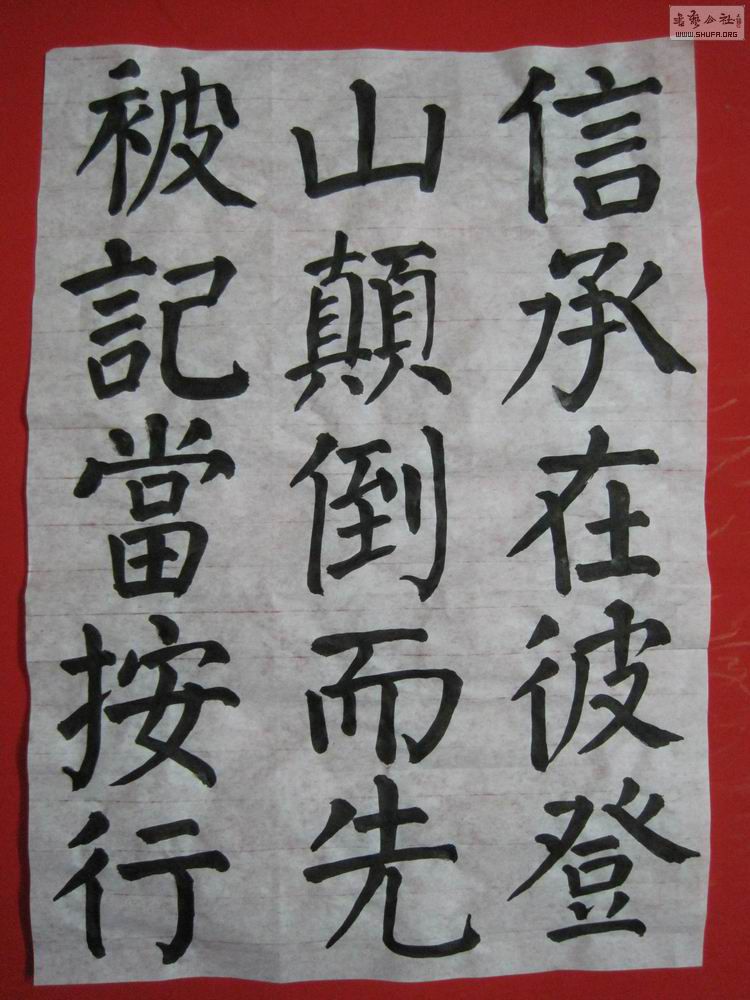 信承在彼登
山顛倒而先
被記當按行
WWW.SHUFA.ORG